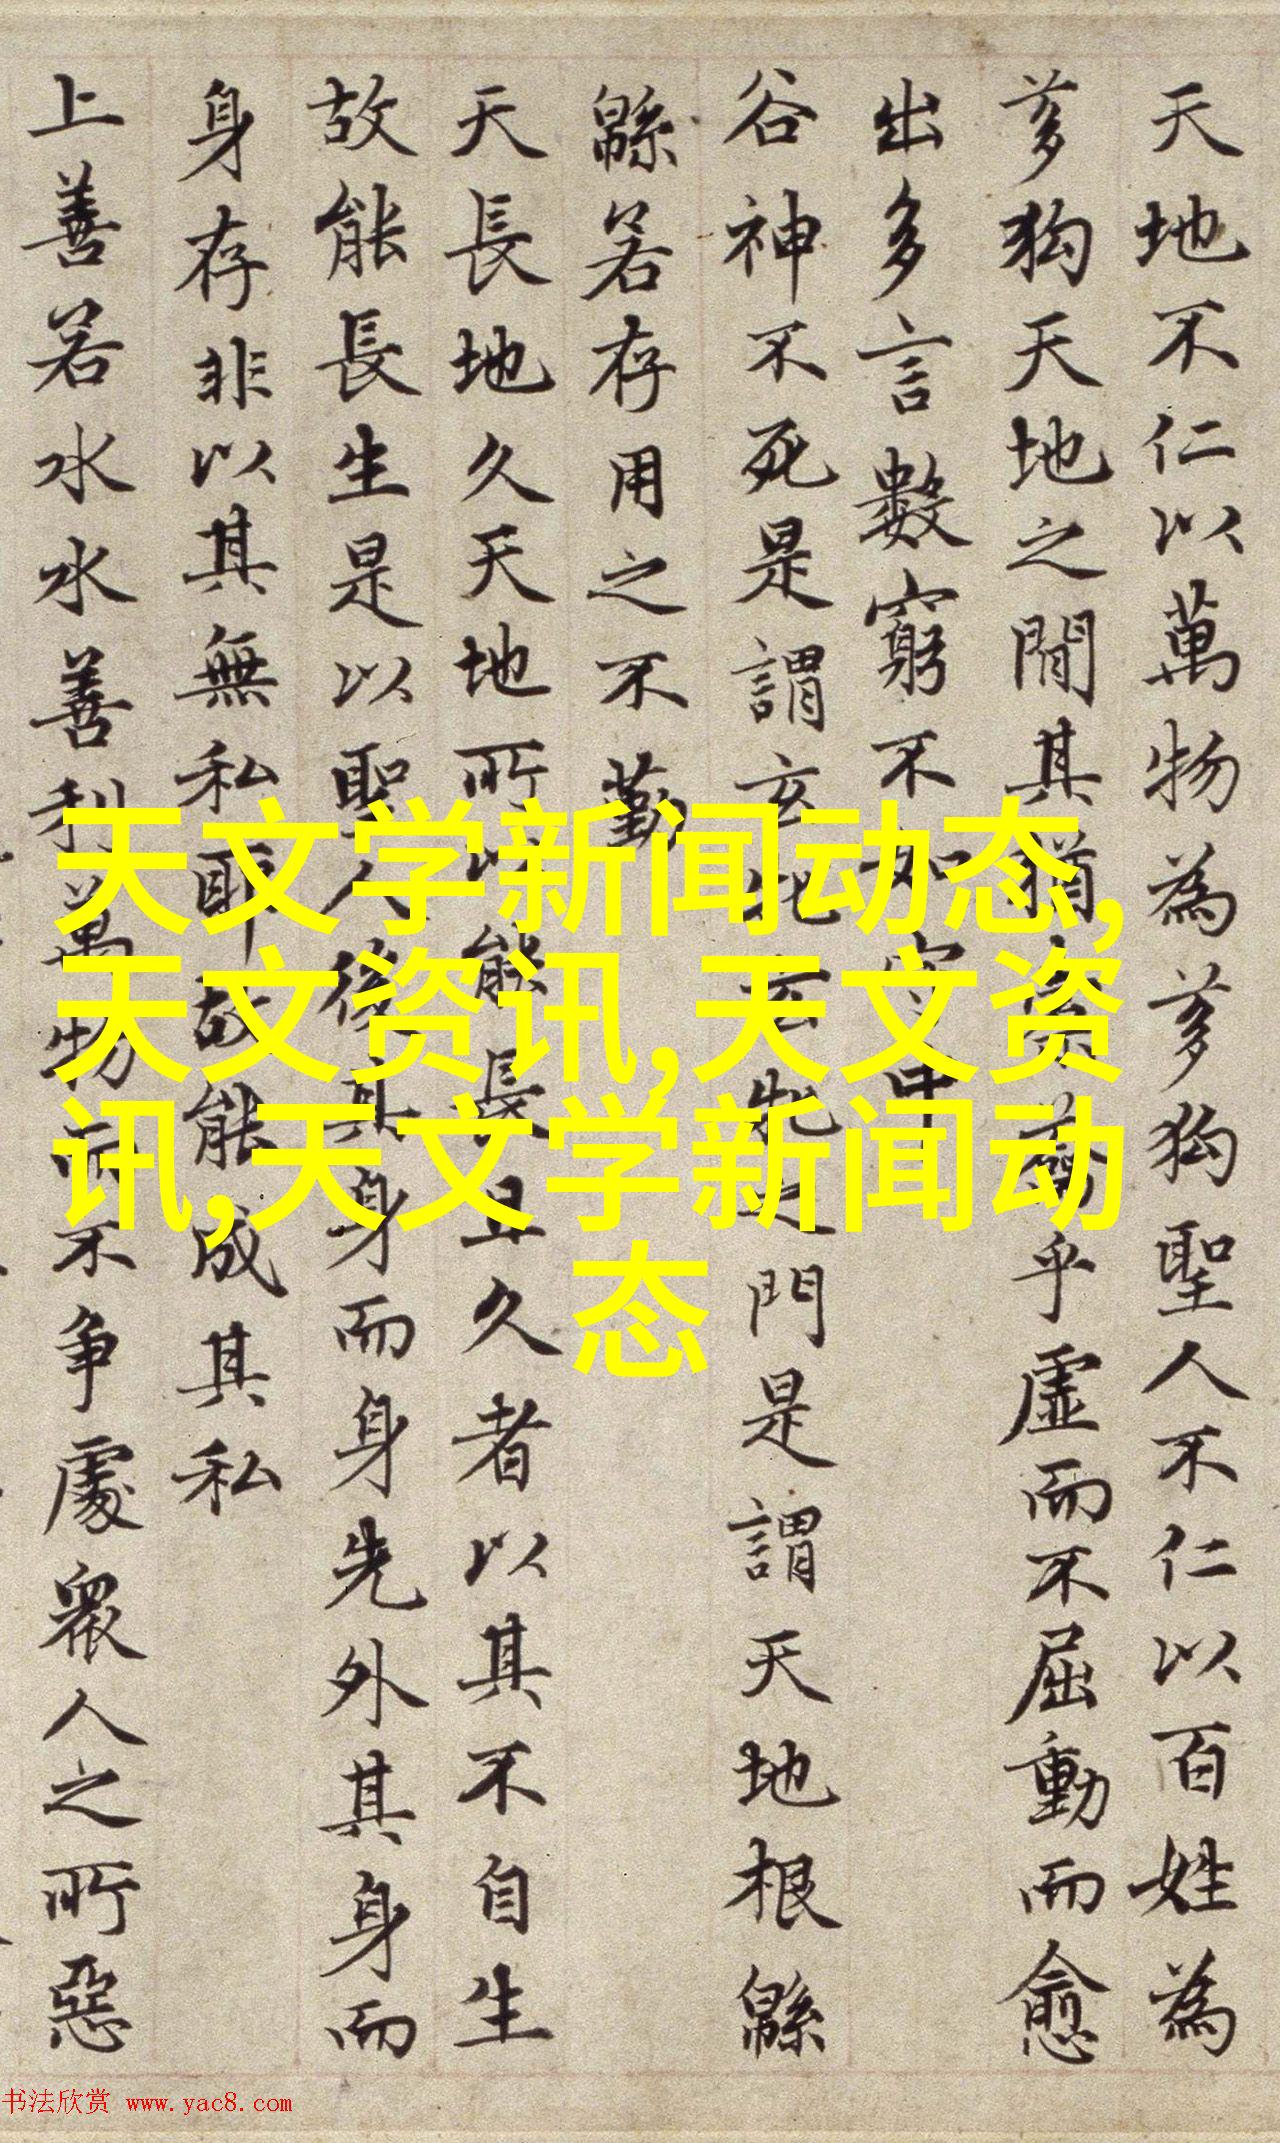 天地不仁以萬物為芻狗聖人不仁以百姓為
芻狗天地之間其猶橐籥乎虛而不屈動而愈
出多言數窮不如守中
谷神不死是謂玄牝玄牝之門是謂天地根緜
緜若存用之不勤
天長地久天地所以能長且久者以其不自生
故能長生是以聖人後其身而身先外其身而
身存非以其無私耶故能成其私
上善若水水善利萬物而不争處衆人之所惡
天文学新闻动态,
天文资讯,天文资
讯,天文学新闻动
态
书法欣赏 www.yac8.com